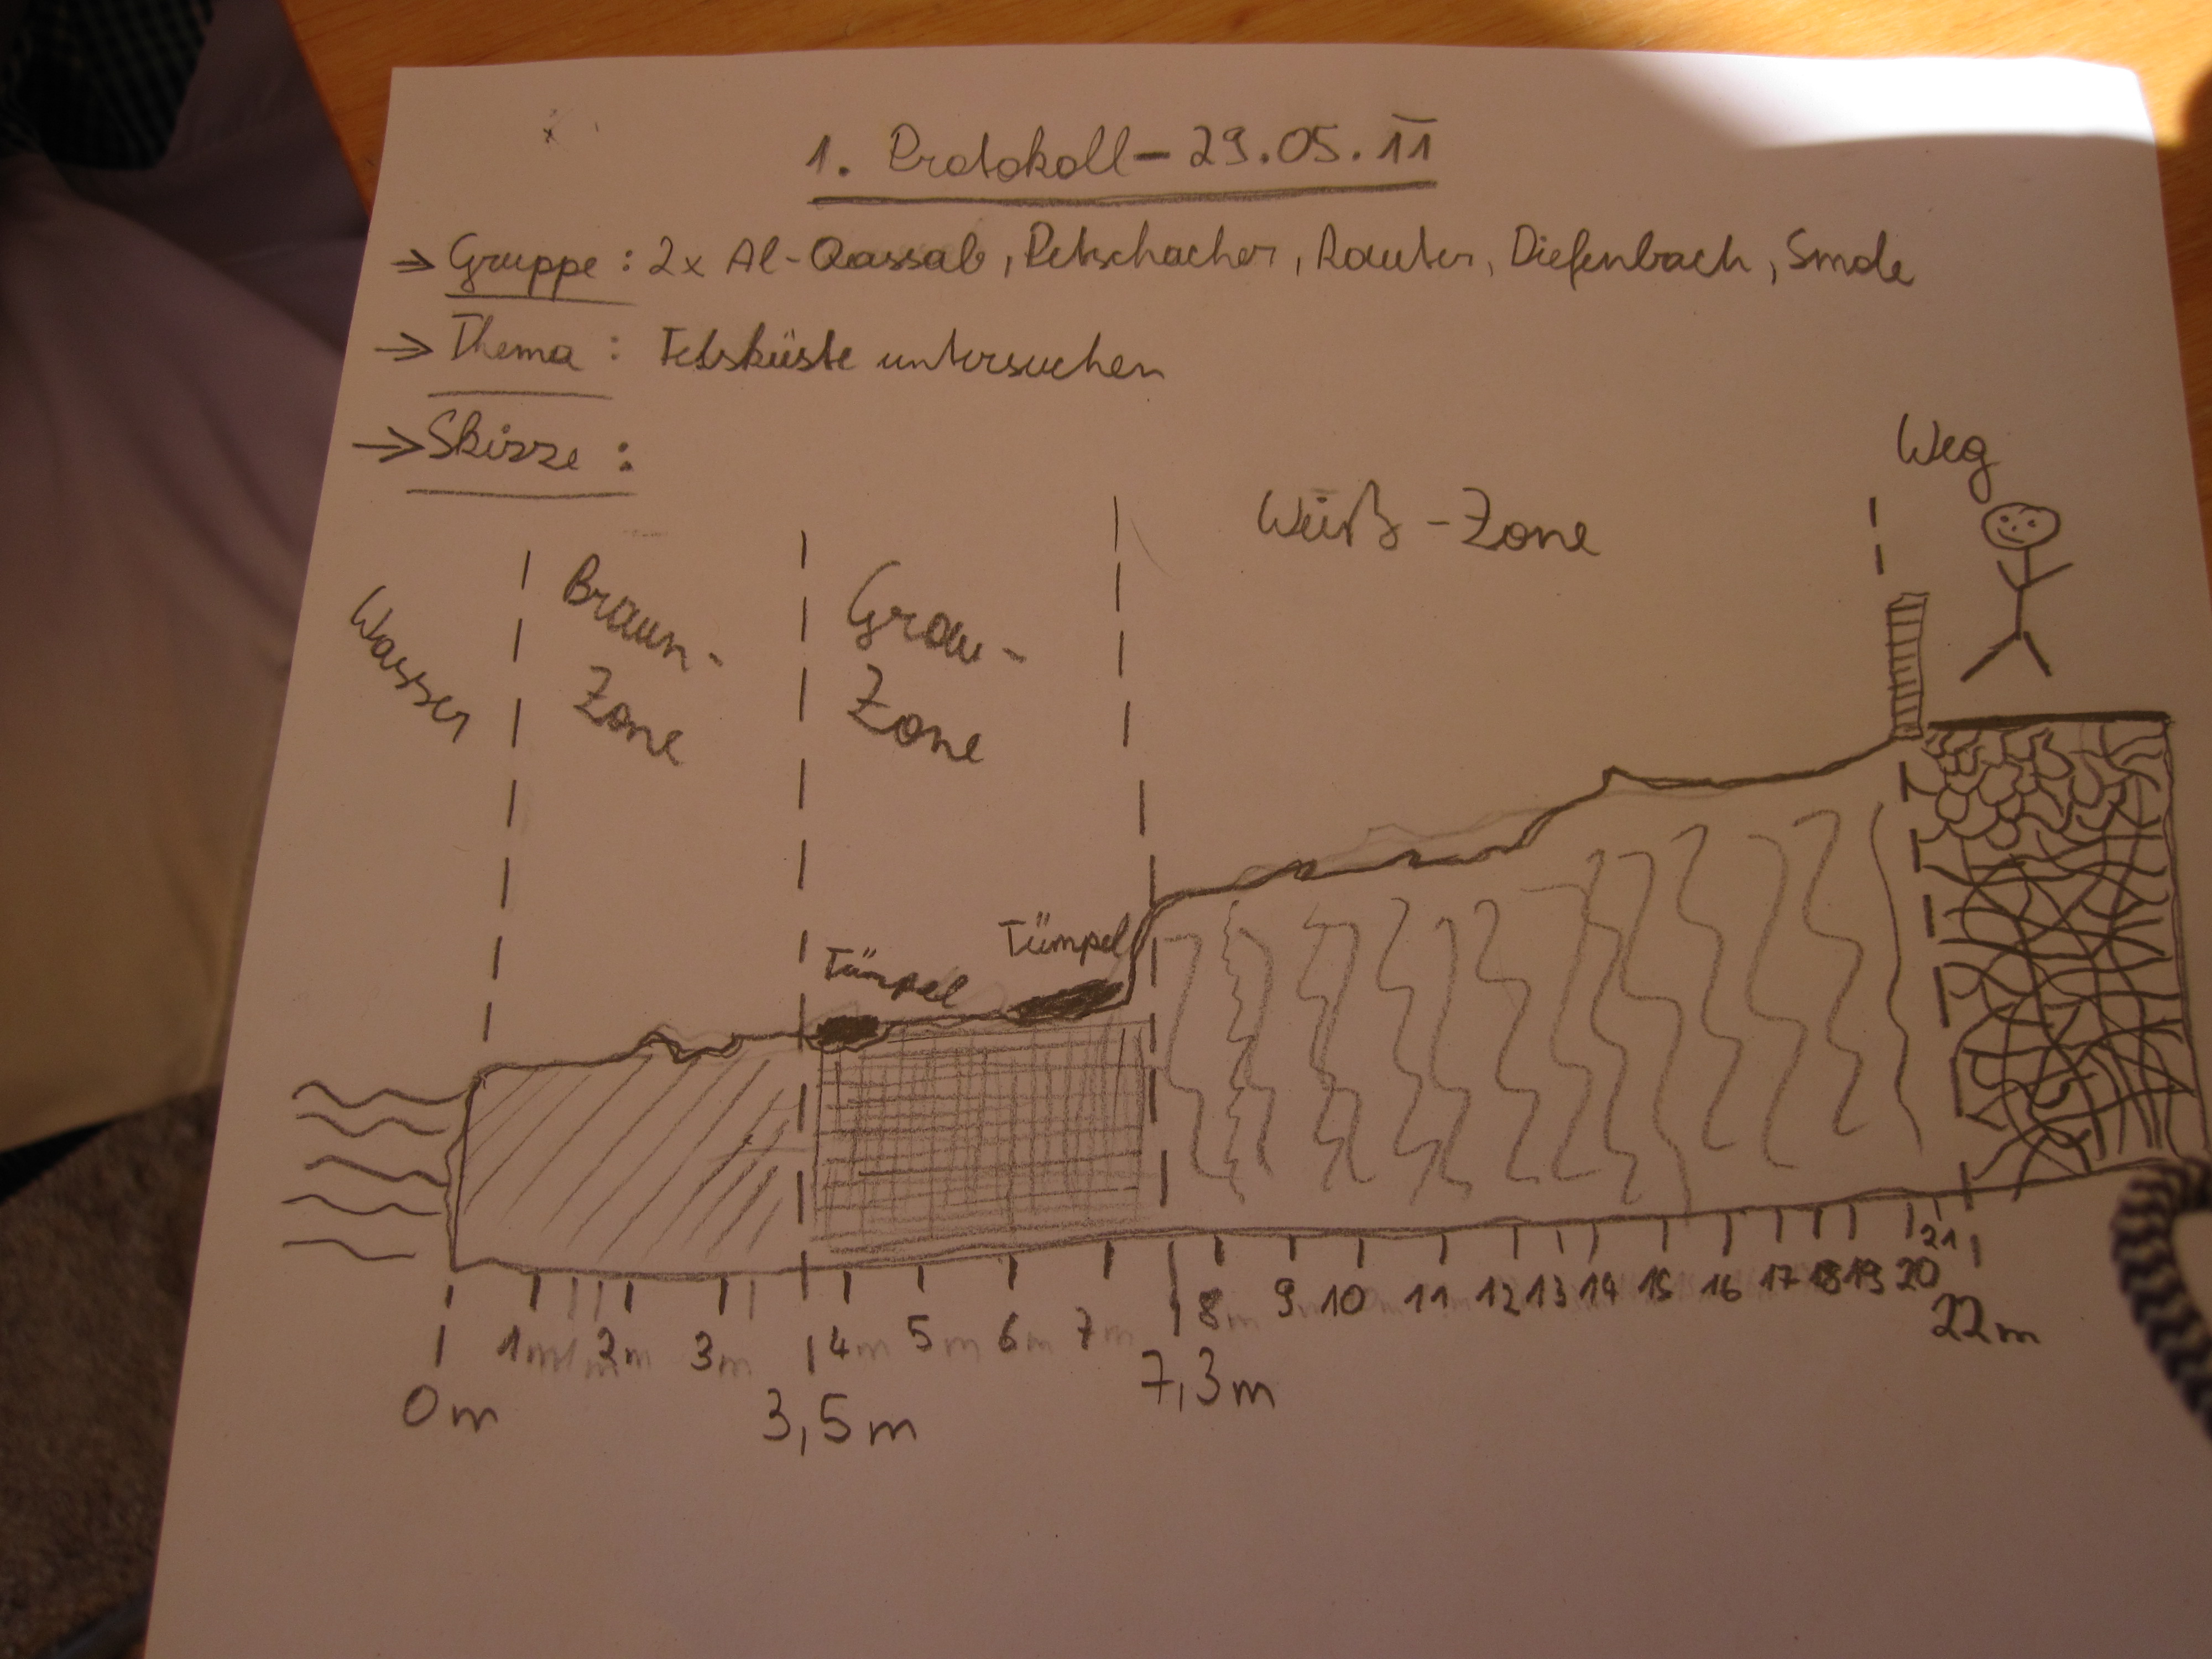 1. Protokoll - 29.05.11
→ Gruppe : 2x Al-Qassab, Petschacher, Rauter, Diefenbach, Smole
→ Thema : Felsküste untersuchen
→ Skizze :
Wasser
Braun-
Zone
Grau-
Zone
Weiß-Zone
Weg
Tümpel
Tümpel
1m 2m 3m 4m 5m 6m 7m 8m 9m 10 11 12 13 14 15 16 17 18 19 20 21
0m 3,5m 7,3m 22m